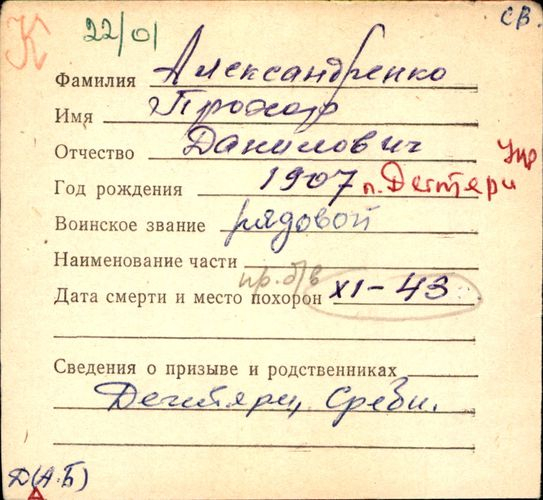 К 22/01 СВ.
Фамилия Александренко
Имя Прохор
Отчество Данилович
Укр
Год рождения 1907 п. Дегтяри
Воинское звание рядовой
Наименование части
пр. б/в
Дата смерти и место похорон XI-43
Сведения о призыве и родственниках
Дегтяри, Среби.
Д(А.Б)